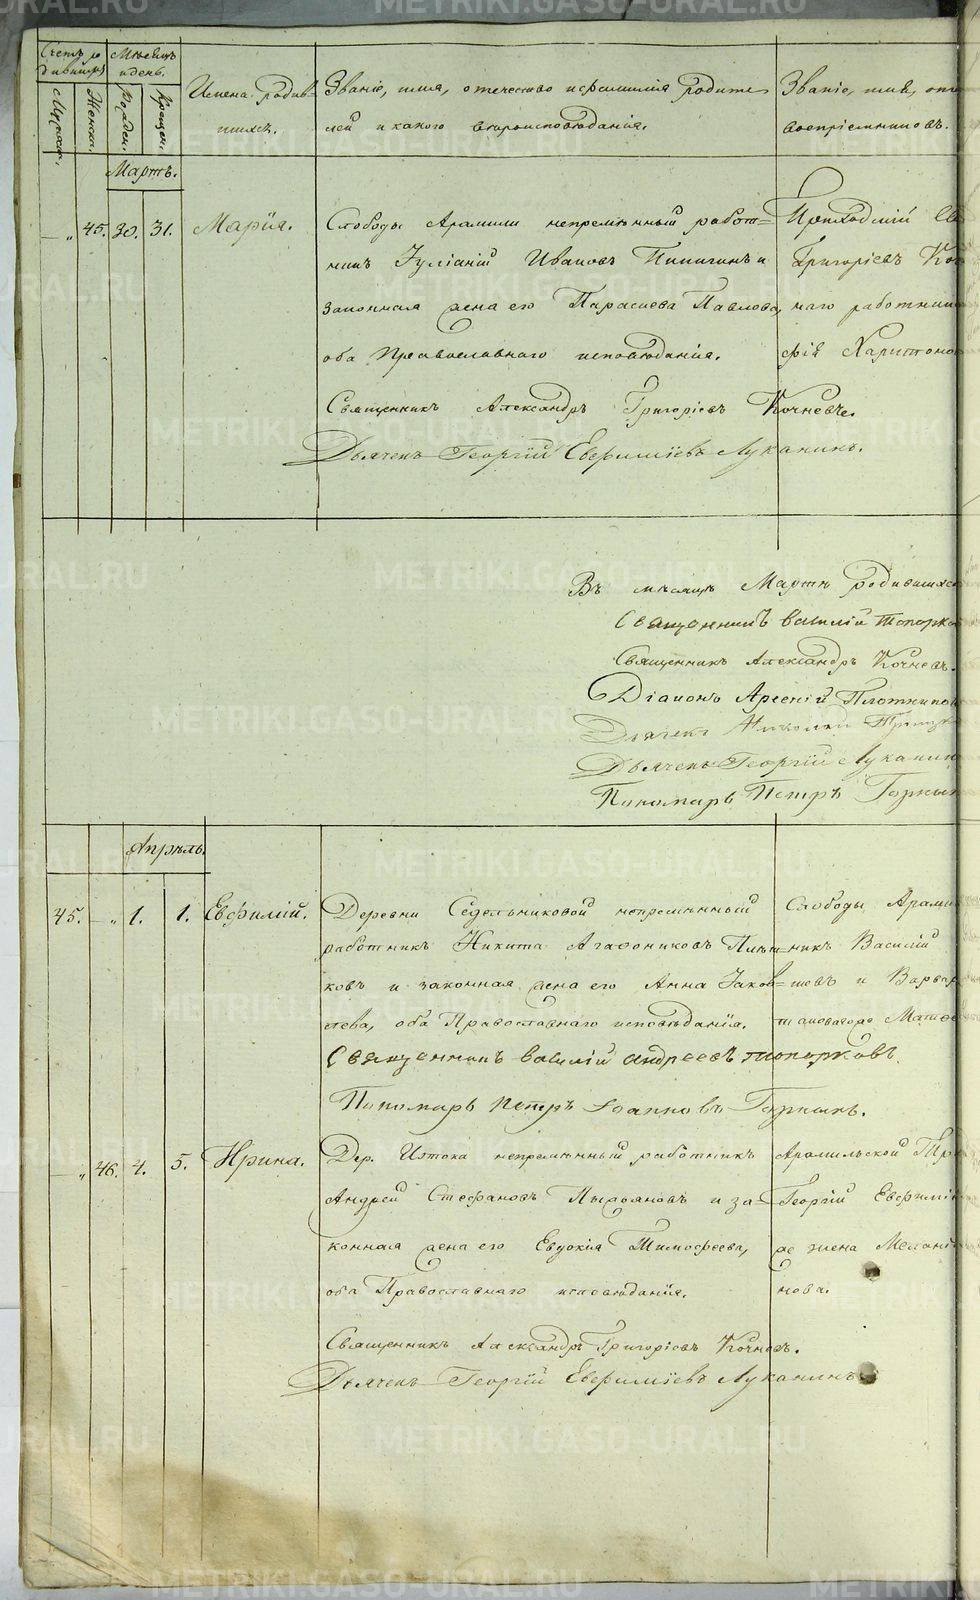 Счетъ ро
дившихъ
Мѣсяцъ
и день.
Имена родив-
шихся.
Званіе, имя, отечество и фамилія родите
лей и какого вѣроисповѣданія.
Званіе, имя, оте
воспріемниковъ.
Мужска.
Женска.
Рожден.
Крещен.
Мартъ.
— „ 45. 30. 31. Марія.
Слободы Арамили непремѣнный работ=
никъ Іуліаній Ивановъ Пинигинъ и
законная жена его Параскева Павлова,
оба Православнаго исповѣданія.
Священникъ Александръ Григорьевъ Кочневъ.
Дьячекъ Георгій Евфиміевъ Луканинъ.
Григорьевъ Коч
наго работник
фія Харитоно
Въ мѣсяцѣ Мартѣ родившихся
Священникъ Василій Топорко
Священникъ Александръ Кочневъ.
Діаконъ Арсеній Плотников
Дьячекъ Николай
Дьячекъ Георгій Луканин
Пономарь Петръ Горных
Апрѣль.
45. — „ 1. 1. Евфимій.
Деревни Седельниковой непремѣнный
работникъ Никита Агафониковъ
ковъ и законная жена его Анна Іаков=
лева, оба Православнаго исповѣданія.
Священникъ Василій Андреевъ Топорковъ.
Пономарь Петръ Іоанновъ Горныхъ.
Слободы Арами
никъ Василій
шевъ и Варвар
Матве
— „ 46. 4. 5. Ирина.
Дер. Истока непремѣнный работникъ
Андрей Стефановъ и за-
конная жена его Евдокія Тимофеева,
оба Православнаго исповѣданія.
Священникъ Александръ Григорьевъ Кочневъ.
Дьячекъ Георгій Евфиміевъ Луканинъ
Арамильской Тро
Георгій Евфимі
же жена Мелані
нова.
METRIKI.GASO-URAL.RU